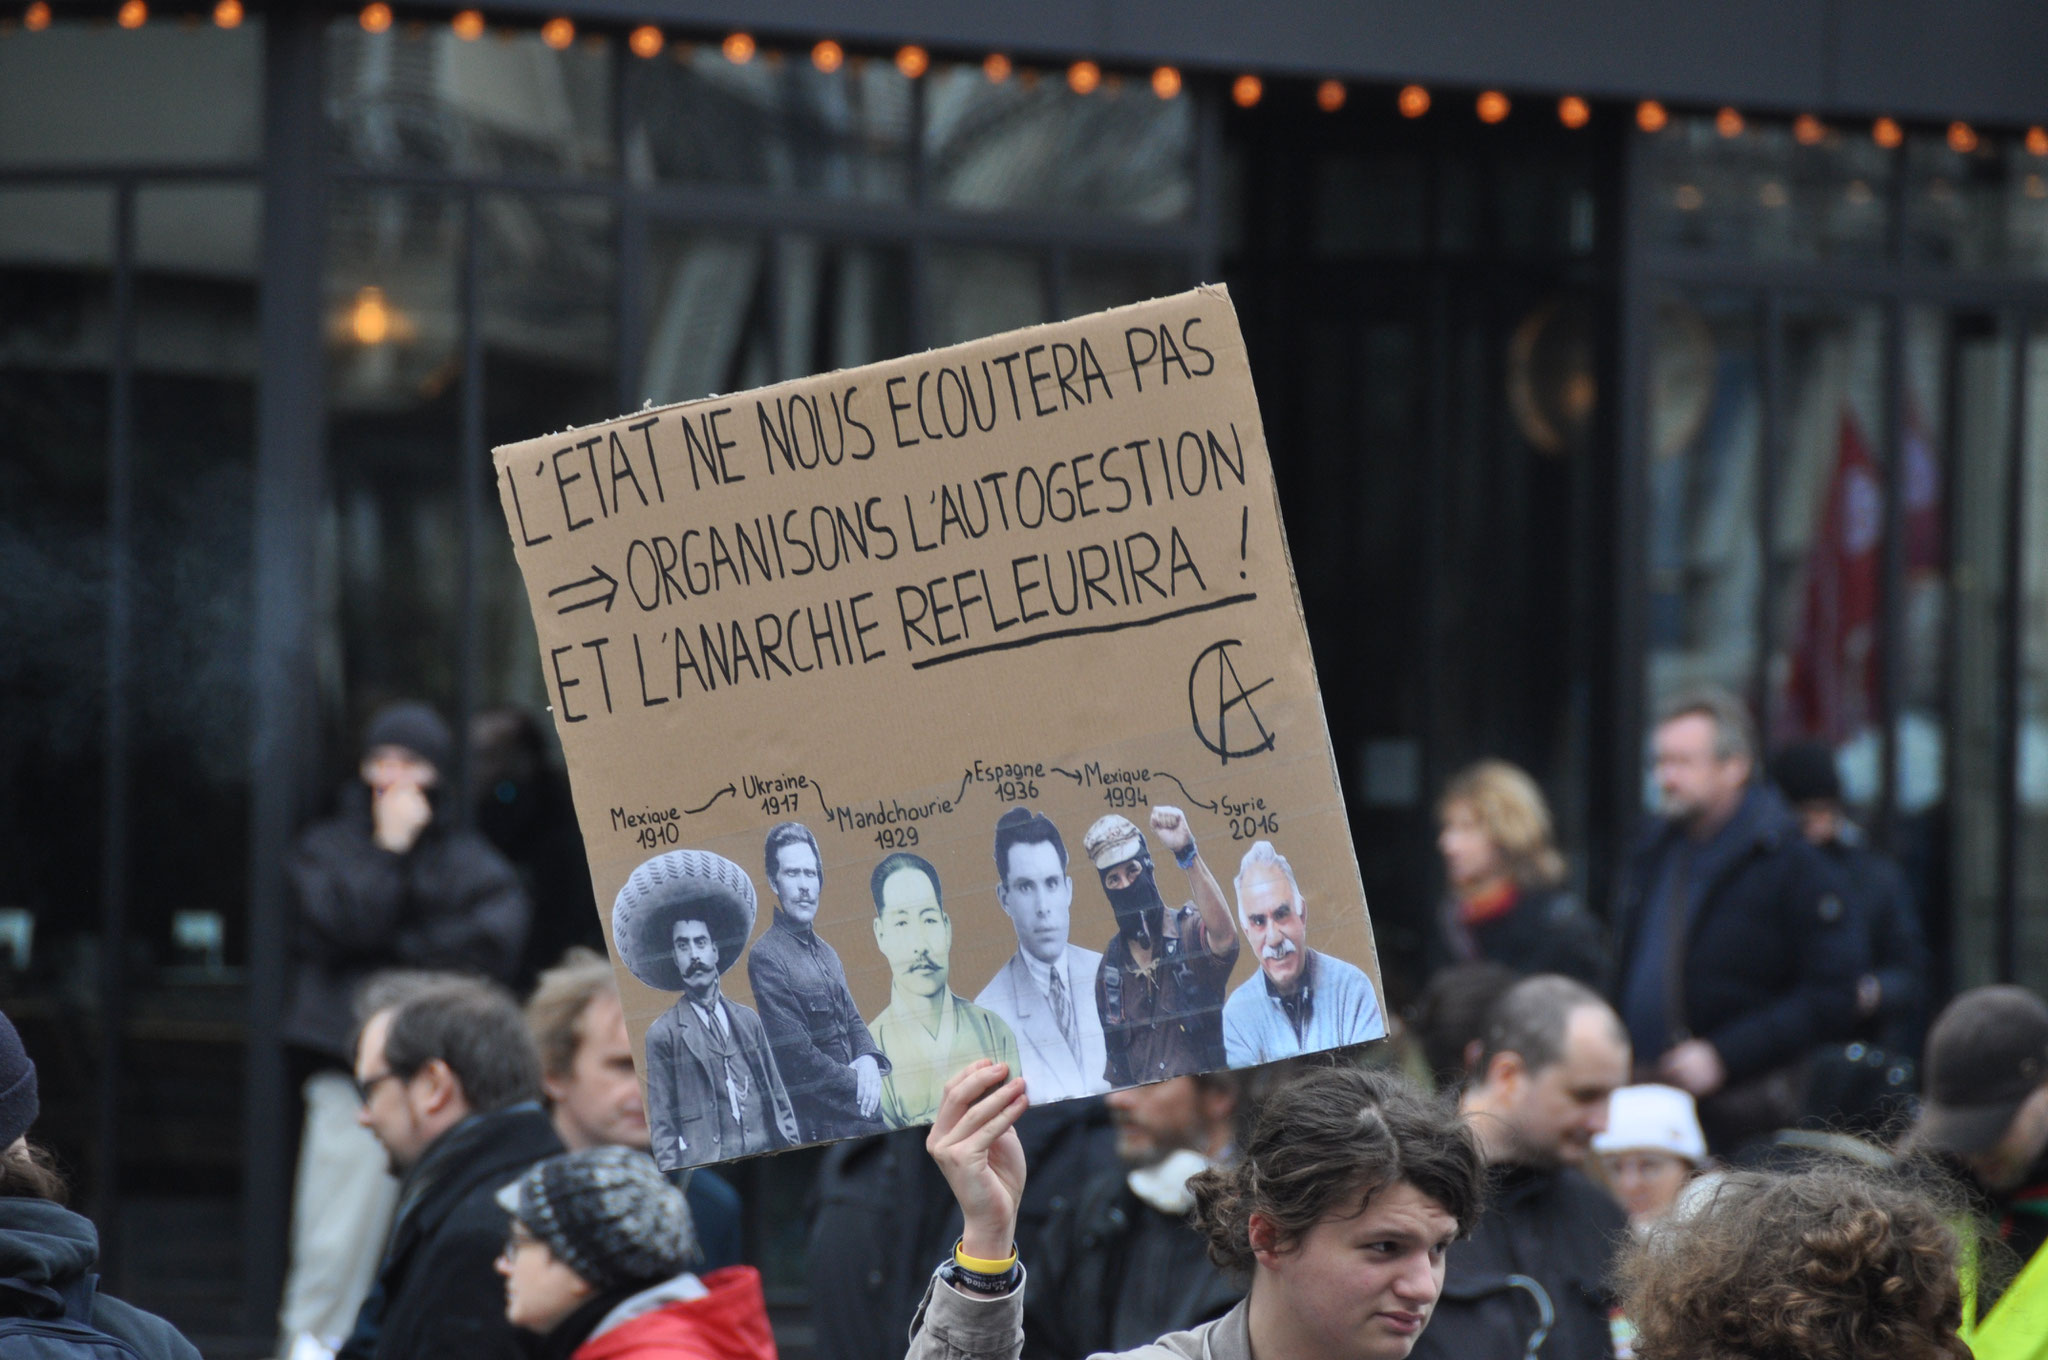 L'ETAT NE NOUS ECOUTERA PAS
⇒ ORGANISONS L'AUTOGESTION
ET L'ANARCHIE REFLEURIRA !
Mexique → Ukraine → Mandchourie → Espagne → Mexique → Syrie
1910 1917 1929 1936 1994 2016